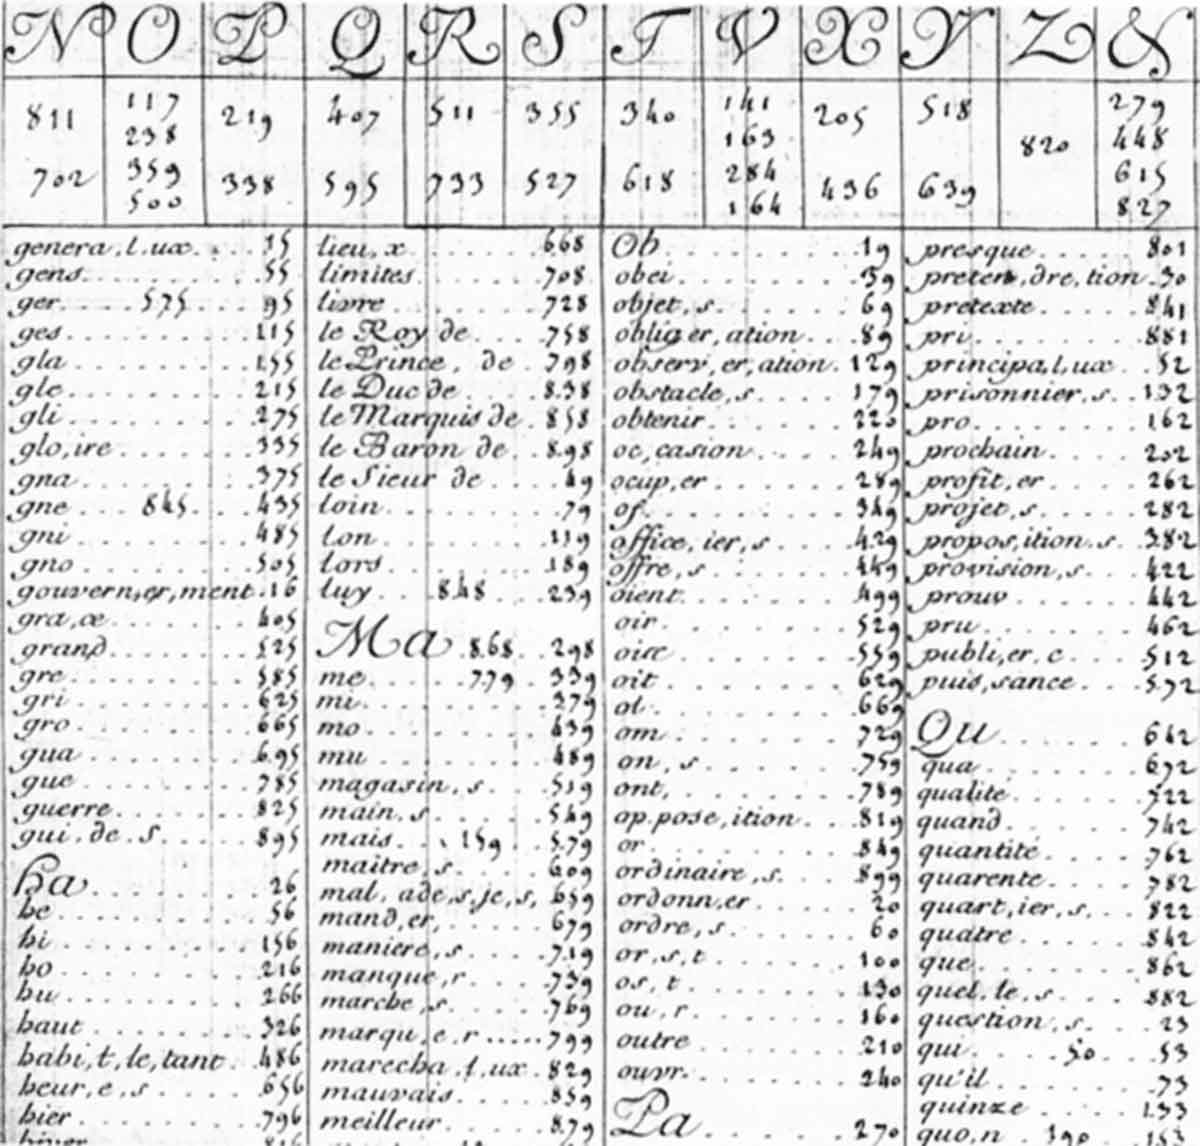 N O P Q R S T V X Y Z &
811 117 219 407 511 355 340 141 205 518 820 279
238 163 448
702 359 338 595 733 527 618 284 436 639 615
500 164 827
genera,l.ux. . . 15
gens . . . 55
ger . . . 575 . . . 95
ges . . . 115
gla . . . 155
gle . . . 215
gli . . . 275
glo,ire . . . 335
gna . . . 375
gne . . . 845 . . . 435
gni . . . 485
gno . . . 505
gouvern,er,ment . 16
gra,ce . . . 405
grand . . . 525
gre . . . 585
gri . . . 625
gro . . . 665
gua . . . 695
gue . . . 785
guerre . . . 825
gui.de.s . . . 895
ha . . . 26
he . . . 56
hi . . . 156
ho . . . 216
hu . . . 266
haut . . . 326
habi,t,le,tant . 486
heur,e,s . . . 656
hier . . . 796
lieu,x . . . 668
limites . . . 708
livre . . . 728
le Roy de . . . 758
le Prince, de . 798
le Duc de . . . 838
le Marquis de . 858
le Baron de . . 898
le Sieur de . . . 49
loin . . . 79
lon . . . 119
lors . . . 189
luy . . . 848 . . . 239
Ma 868 . . 298
me . . . 779 . . . 339
mi . . . 379
mo . . . 439
mu . . . 489
magasin,s . . . 519
main.s . . . 549
mais . . . 159 . . . 579
maitre,s . . . 609
mal,ade,s,je,s, 659
mand,er, . . . 679
maniere,s . . . 719
manque,r . . . 739
marche,s . . . 769
marqu,e,r . . . 799
marecha,l,ux . 829
mauvais . . . 859
meilleur . . . 879
Ob . . . 19
obei . . . 39
objet,s . . . 69
oblig,er,ation . 89
observ,er,ation . 129
obstacle,s . . . 179
obtenir . . . 220
oc,casion . . . 249
ocup,er . . . 289
of . . . 349
office,ier,s . . . 429
offre,s . . . 449
oient . . . 499
oir . . . 529
oise . . . 559
oit . . . 629
ol . . . 669
om . . . 729
on,s . . . 759
ont, . . . 789
op.pose,ition . . . 819
or . . . 849
ordinaire,s . . . 899
ordonn,er . . . 20
ordre,s . . . 60
or,s,t . . . 100
os,t . . . 130
ou,r . . . 160
outre . . . 210
ouvr. . . . 240
Pa . . . 270
presque . . . 801
preten,dre,tion . 30
pretexte . . . 841
pri . . . 881
principa,l,ux . 52
prisonnier,s . . 132
pro . . . 162
prochain . . . 202
profit,er . . . 262
projet,s . . . 282
propos,ition.s . 382
provision,s . . . 422
prouv . . . 442
pru . . . 462
publi,er,c . . . 512
puis,sance . . . 572
Qu . . . 642
qua . . . 672
qualité . . . 722
quand . . . 742
quantité . . . 762
quarente . . . 782
quart,ier,s . . . 822
quatre . . . 842
que . . . 862
quel,le,s . . . 882
question,s . . . 23
qui . . . 50 . . . 53
qu'il . . . 73
quinze . . . 133
quo,n 390